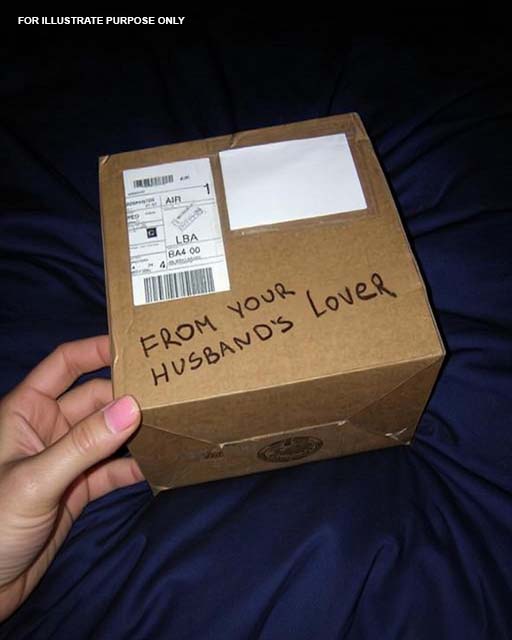 FOR ILLUSTRATE PURPOSE ONLY
1
AIR
LBA
BA4 00
4
FROM YOUR
HUSBAND'S LOVER